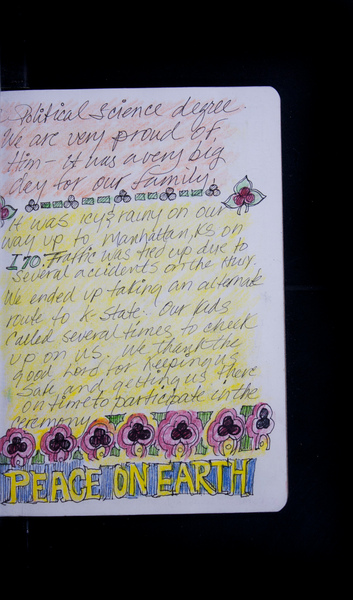 Political Science degree.
We are very proud of
Him - it was a very big
day for our family.
It was icy & rainy on our
way up to Manhattan, KS on
I70. Traffic was tied up due to
several accidents on the Hwy.
We ended up taking an alternate
route to K-State. Our kids
called several times to check
up on us. We thank the
good Lord for keeping us
safe and getting us there
on time to participate in the
ceremony.
PEACE ON EARTH